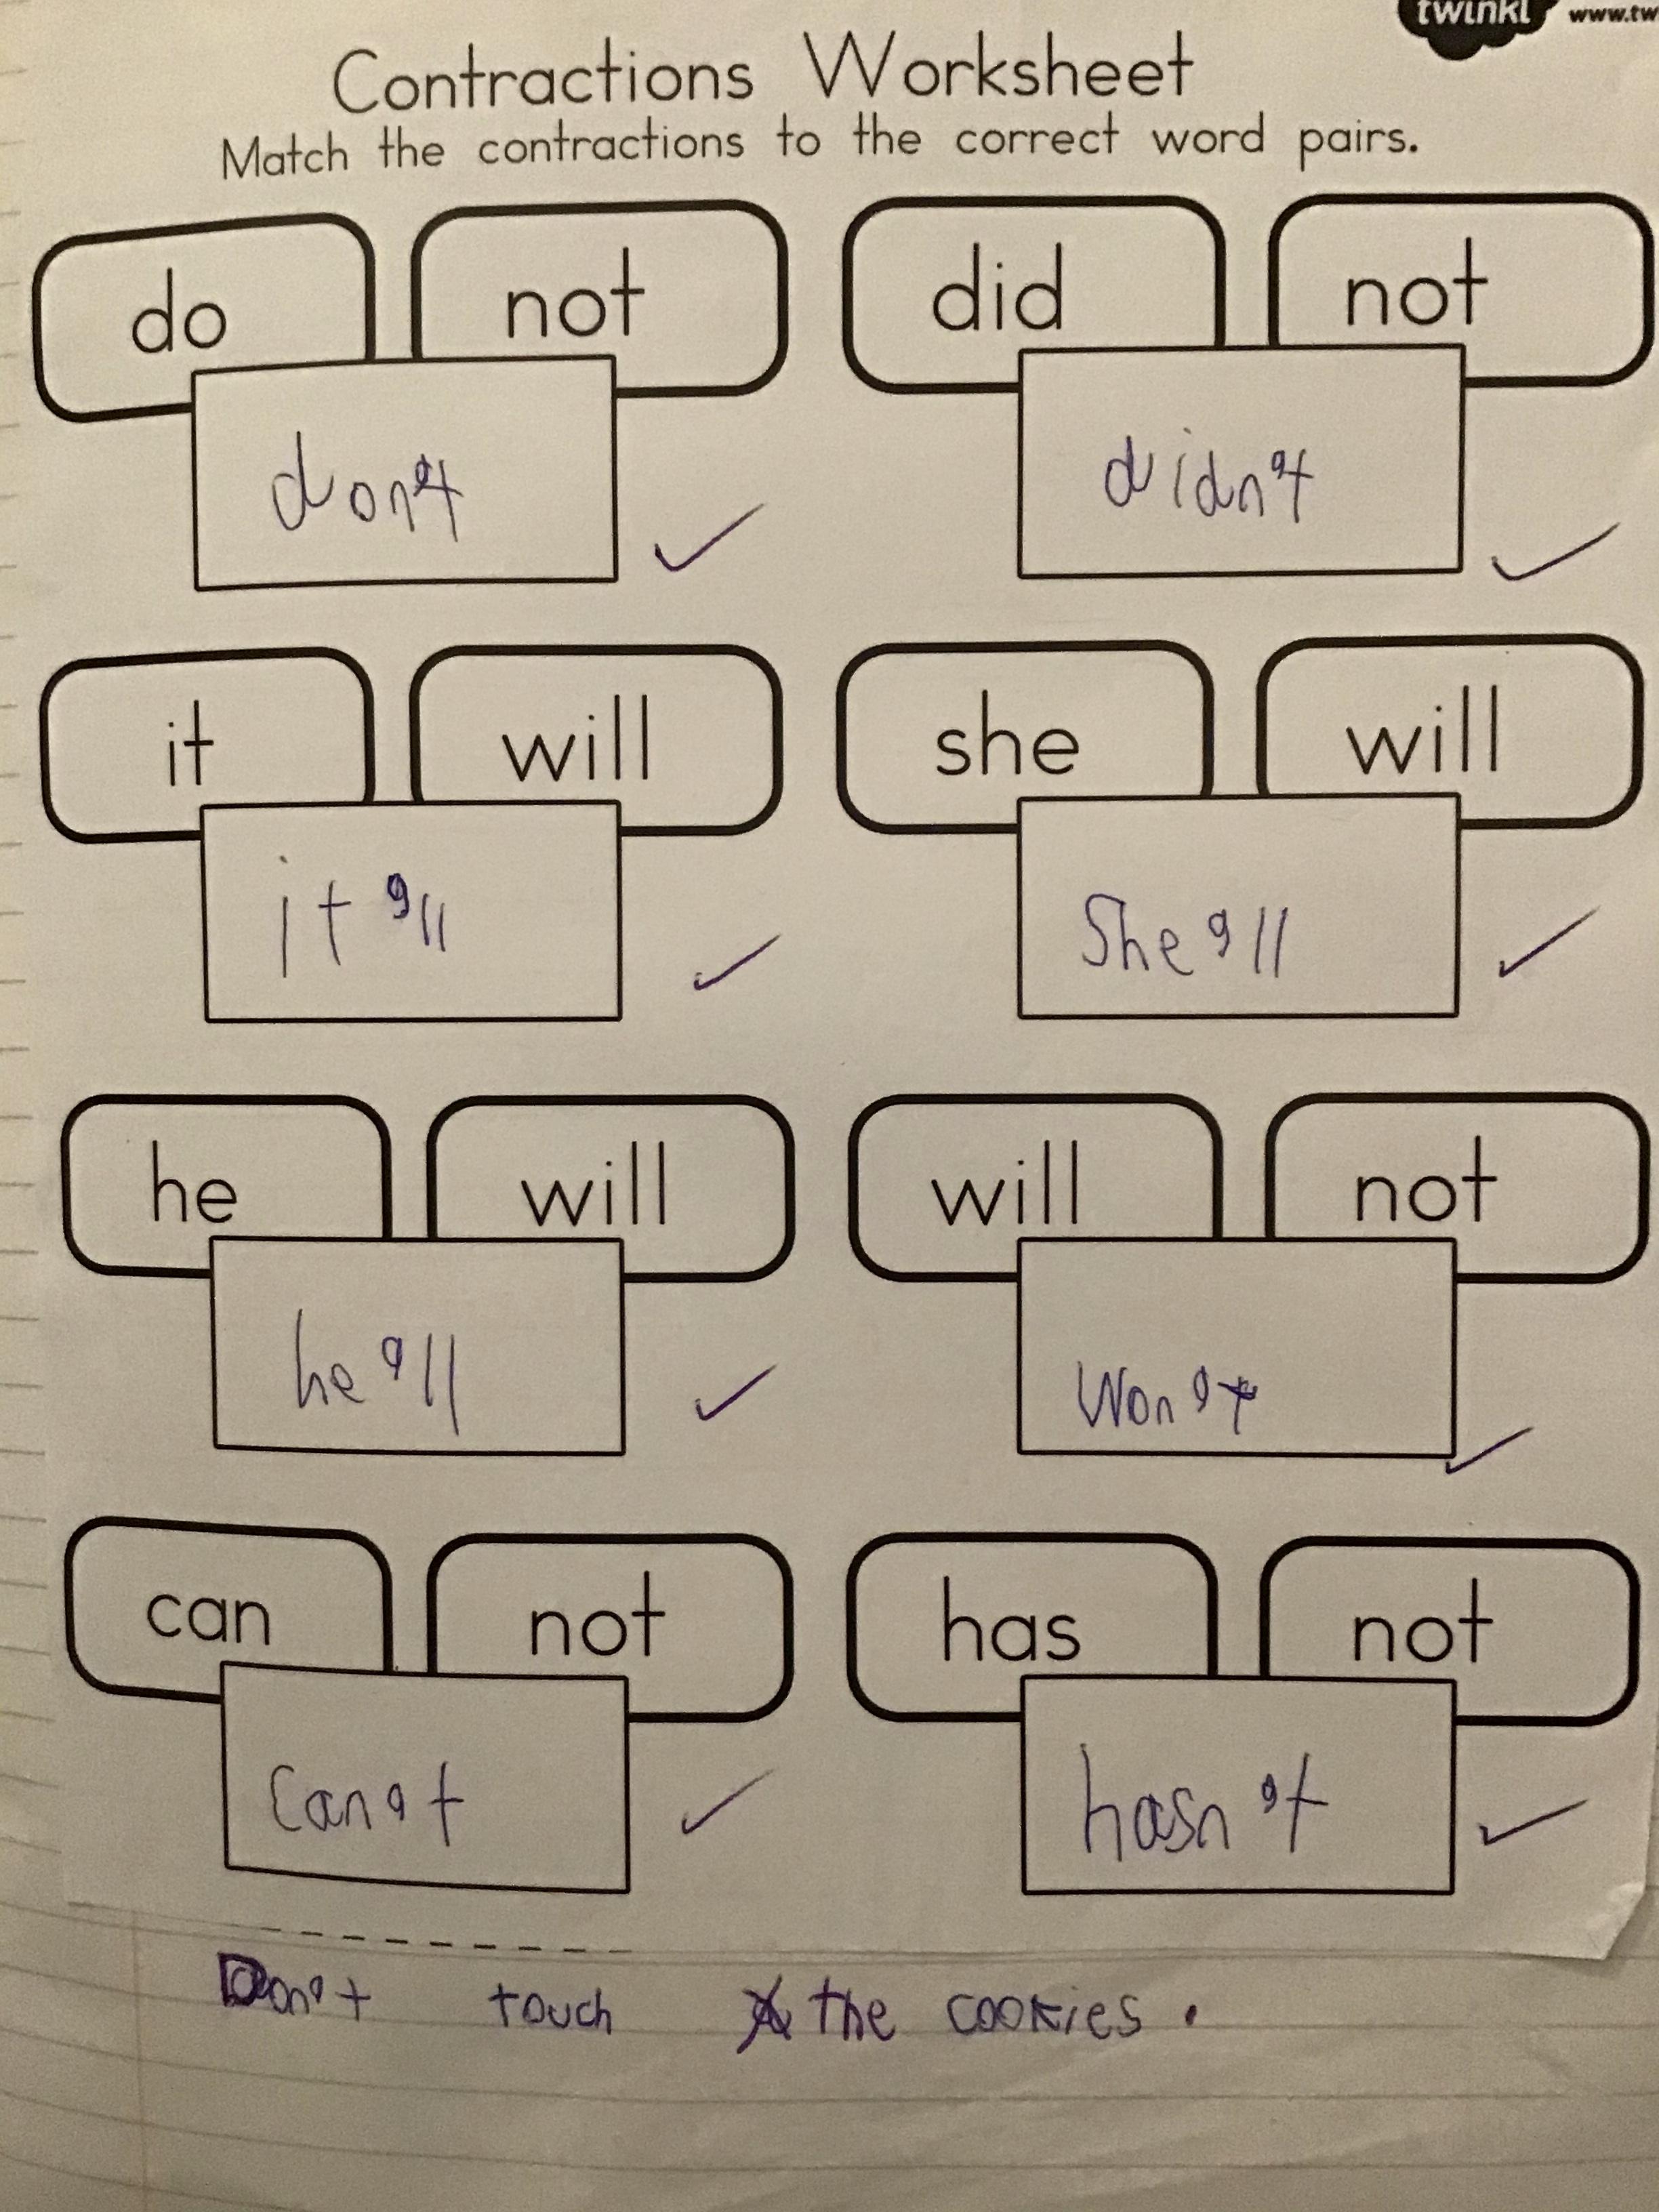 twinkl www.tw
Contractions Worksheet
Match the contractions to the correct word pairs.
do not did not
don't didn't
it will she will
it'll She'll
he will will not
he'll Won't
can not has not
Can't hasn't
Don't touch the cookies.